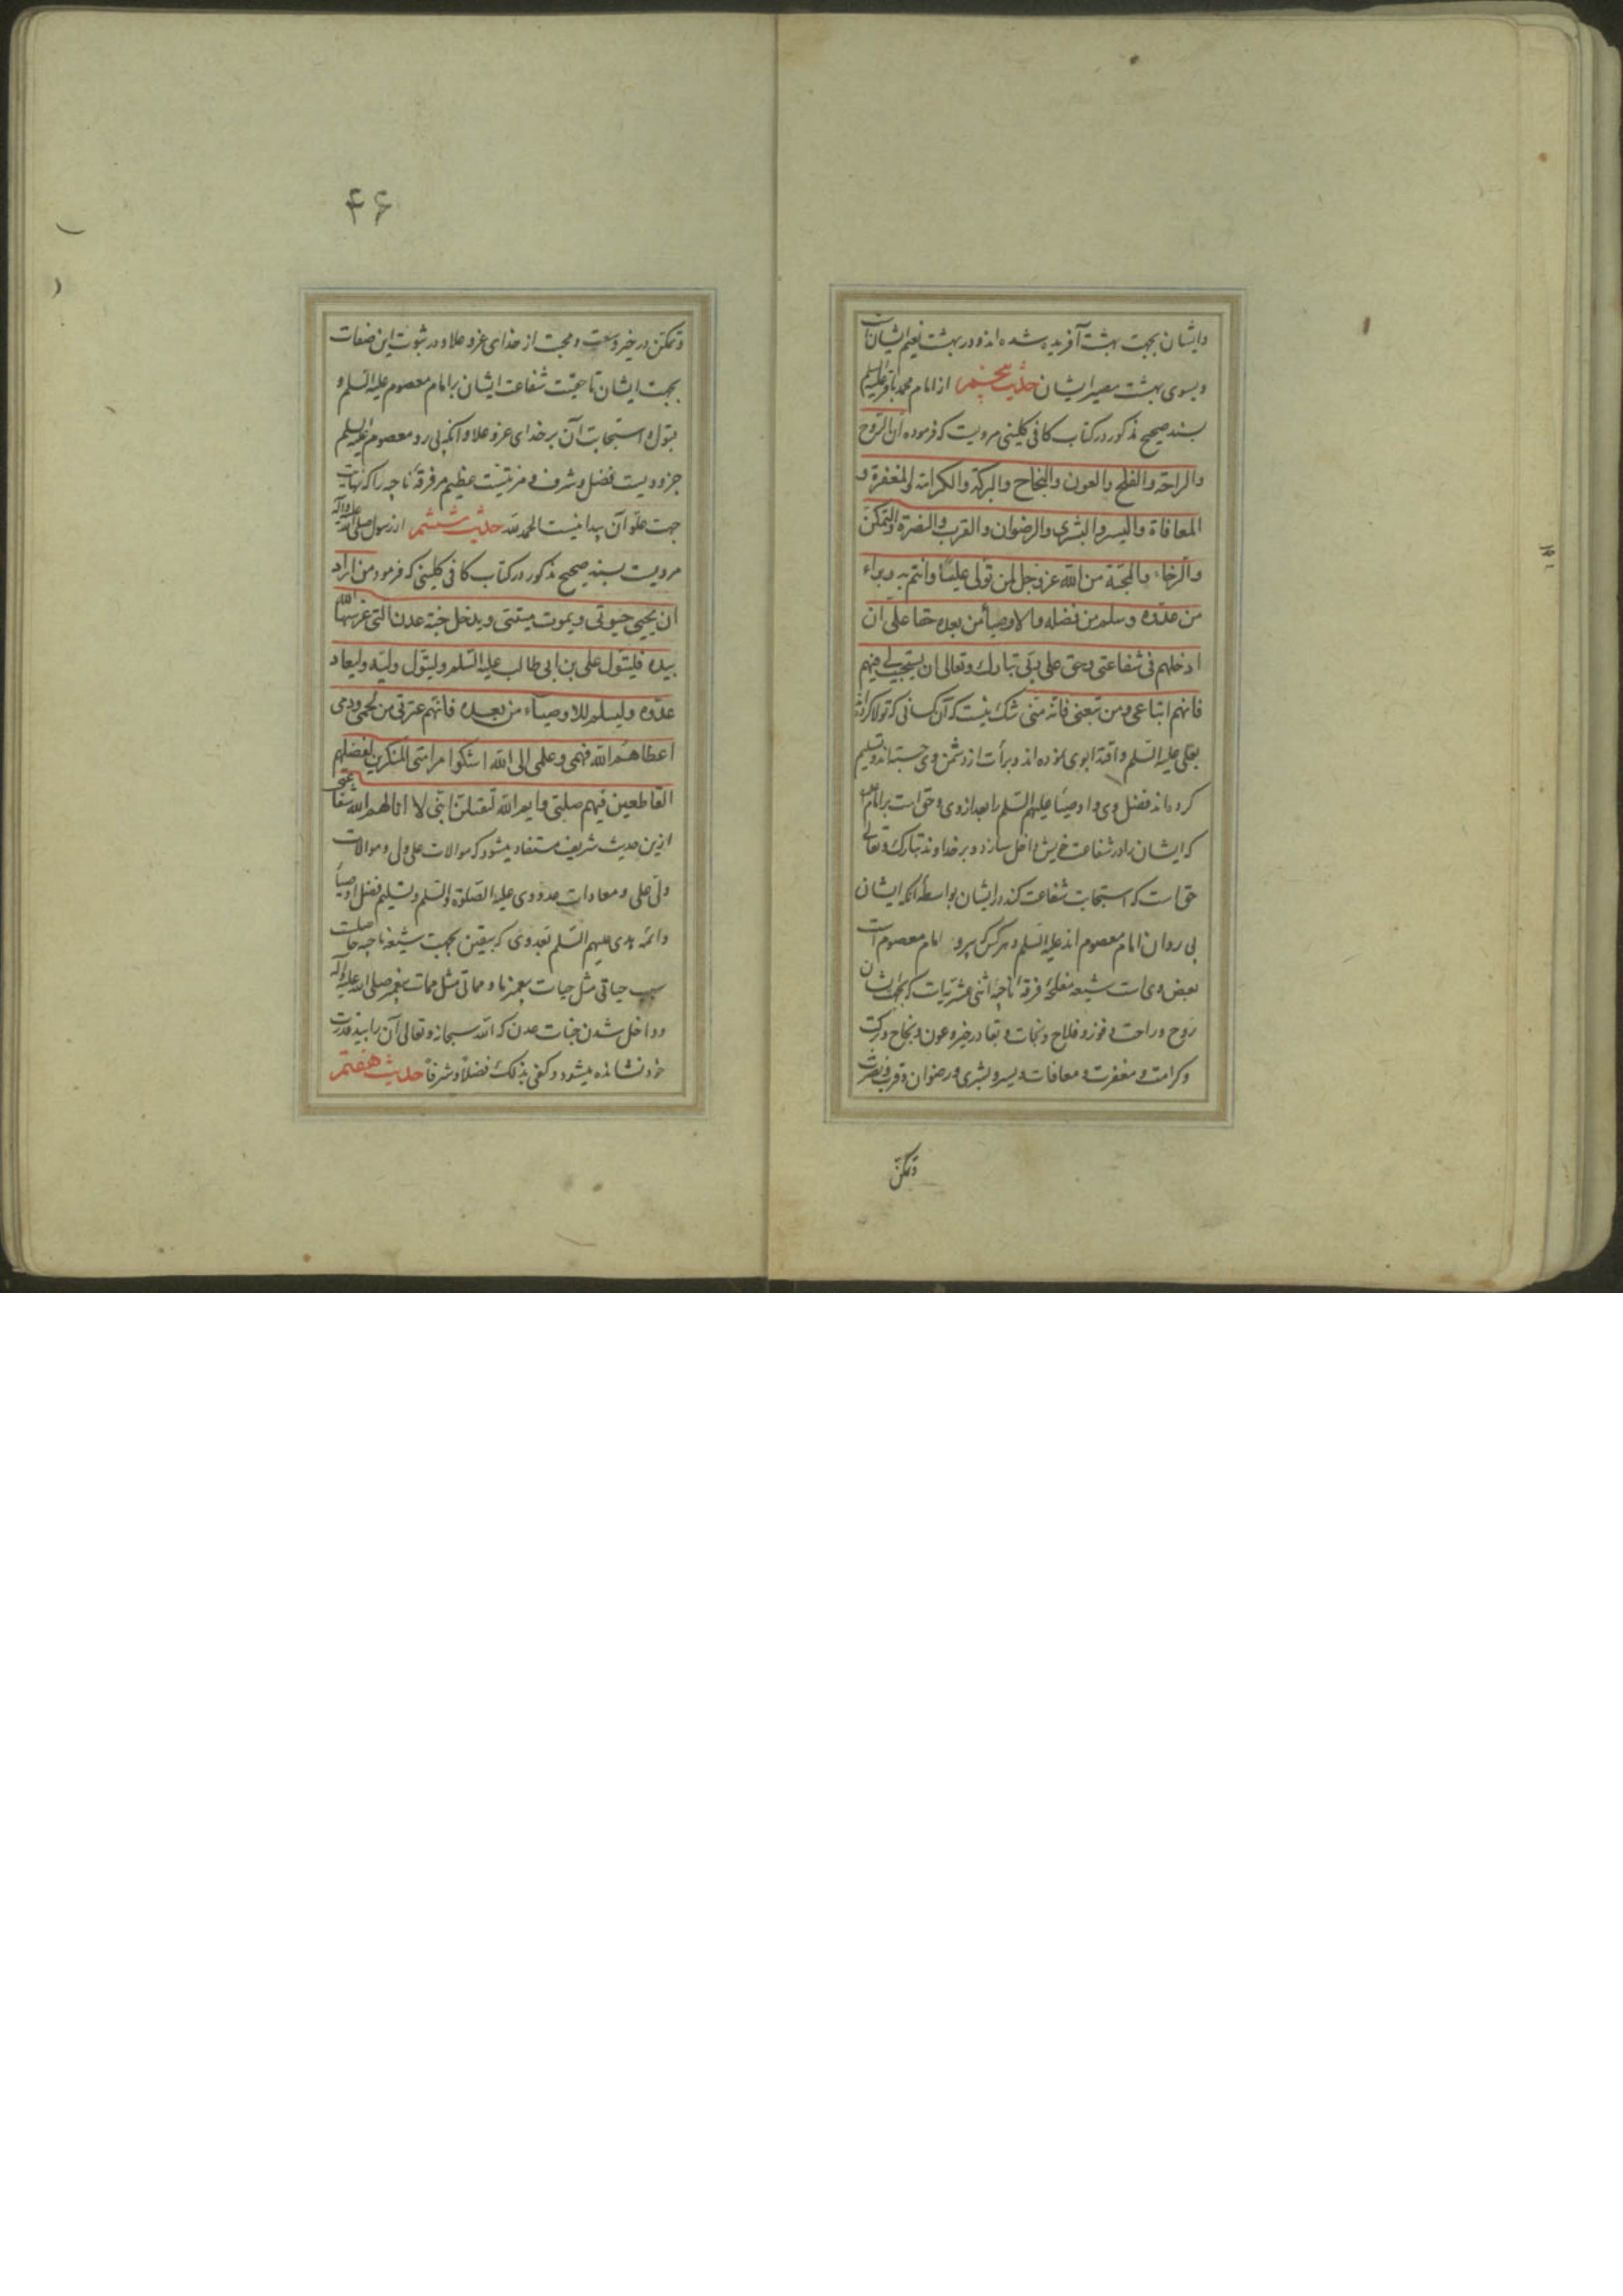 وایشان بجهت بهشت آفریده شده اند و در بهشت نعیم ایشانست
و بسوی بهشت مصیر ایشان حدیث پنجم از امام محمد باقر علیه السلم
بسند صحیح مذکور در کتاب کافی کلینی مرویست که فرموده ان الروح
والراحة والفلج والعون والنجاح والبرکة والکرامة والمغفرة و
المعافاة والیسر والبشری والرضوان والقرب والنصرة والتمکن
والرخاء والمحبة من الله عز وجل لمن تولی علیا وائتم به وبراء
من عدوه وسلم من فضله والاوصیا من بعده حقا علی ان
ادخلهم فی شفاعتی وحق علی ربی تبارک وتعالی ان یستجیب لی فیهم
فانهم اتباعی ومن تبعنی فانه منی شک نیست که آن کسانی که تولا کرده اند
بعلی علیه السلم و اقتدا بوی نموده اند و برأت از دشمن وی جسته اند و تسلیم
کرده اند فضل وی و اوصیا علیهم السلم را بعد از وی و حق است بر امام
که ایشان را در شفاعت خویش داخل سازد و بر خداوند تبارک و تعالی
حق است که استجابت شفاعت کند در ایشان بواسطه آنکه ایشان
پی روان امام معصوم اند علیه السلم و هر کس که پیرو امام معصوم است
بعض وی است شیعه مفلحه فرقه ناجیه اثنی عشریه است که بجهت ایشان
روح و راحت و فوز و فلاح و نجات و بقا در خیر و عون و نجاح و برکت
و کرامت و مغفرت و معافات و یسر و بشری و رضوان و قرب و نصرت
وتمکن
۴۶
وتمکن در خیر وسعت و محبت از خدای عز و علا و در ثبوت این صفات
بجهت ایشان تا حقیت شفاعت ایشان بر امام معصوم علیه السلم و
قبول و استجابت آن بر خدای عز و علا و آنکه پی رو معصوم علیه السلم
جزو ویست فضل و شرف و مزیتیست عظیم مر فرقه ناجیه را که نهایت
جهت علو آن پیدا نیست الحمد لله حدیث ششم از رسول صلی الله علیه وآله
مرویست بسند صحیح مذکور در کتاب کافی کلینی که فرمود من اراد
ان یحیی حیوتی ویموت میتتی ویدخل جنة عدن التی غرسها الله
بیده فلیتول علی بن ابی طالب علیه السلم ولیتول ولیه ولیعاد
عدوه ولیسلم للاوصیاء من بعده فانهم عترتی من لحمی ودمی
اعطاهم الله فهمی وعلمی الی الله اشکوا من امتی المنکرین لفضلهم
القاطعین فیهم صلتی وایم الله لیقتلن ابنی لا انالهم الله شفاعتی
ازین حدیث شریف مستفاد میشود که موالات علی ولی و موالات
ولی علی و معادات عدو وی علیه الصلوة والسلم و تسلیم فضل اوصیا
و ائمه هدی علیهم السلم بعد وی که بیقین بجهت شیعه ناجیه حاصلست
سبب حیاتی مثل حیات پیغمبر ما و مماتی مثل ممات پیغمبر صلی الله علیه وآله
و داخل شدن جنات عدن که الله سبحانه و تعالی آن را بید قدرت
خود نشانده میشود و کفی بذلک فضلا و شرفا حدیث هفتم